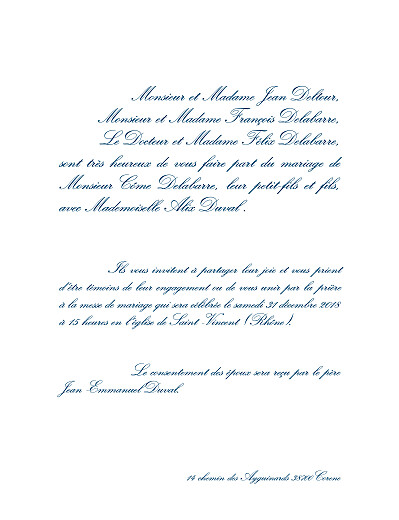 Monsieur et Madame Jean Deltour,
Monsieur et Madame François Delabarre,
Le Docteur et Madame Félix Delabarre,
sont très heureux de vous faire part du mariage de
Monsieur Côme Delabarre, leur petit-fils et fils,
avec Mademoiselle Alix Duval .
Ils vous invitent à partager leur joie et vous prient
d'être témoins de leur engagement ou de vous unir par la prière
à la messe de mariage qui sera célébrée le samedi 31 decembre 2018
à 15 heures en l'église de Saint-Vincent (Rhône).
Le consentement des époux sera reçu par le père
Jean-Emmanuel Duval.
14 chemin des Ayguinards 38700 Corenc